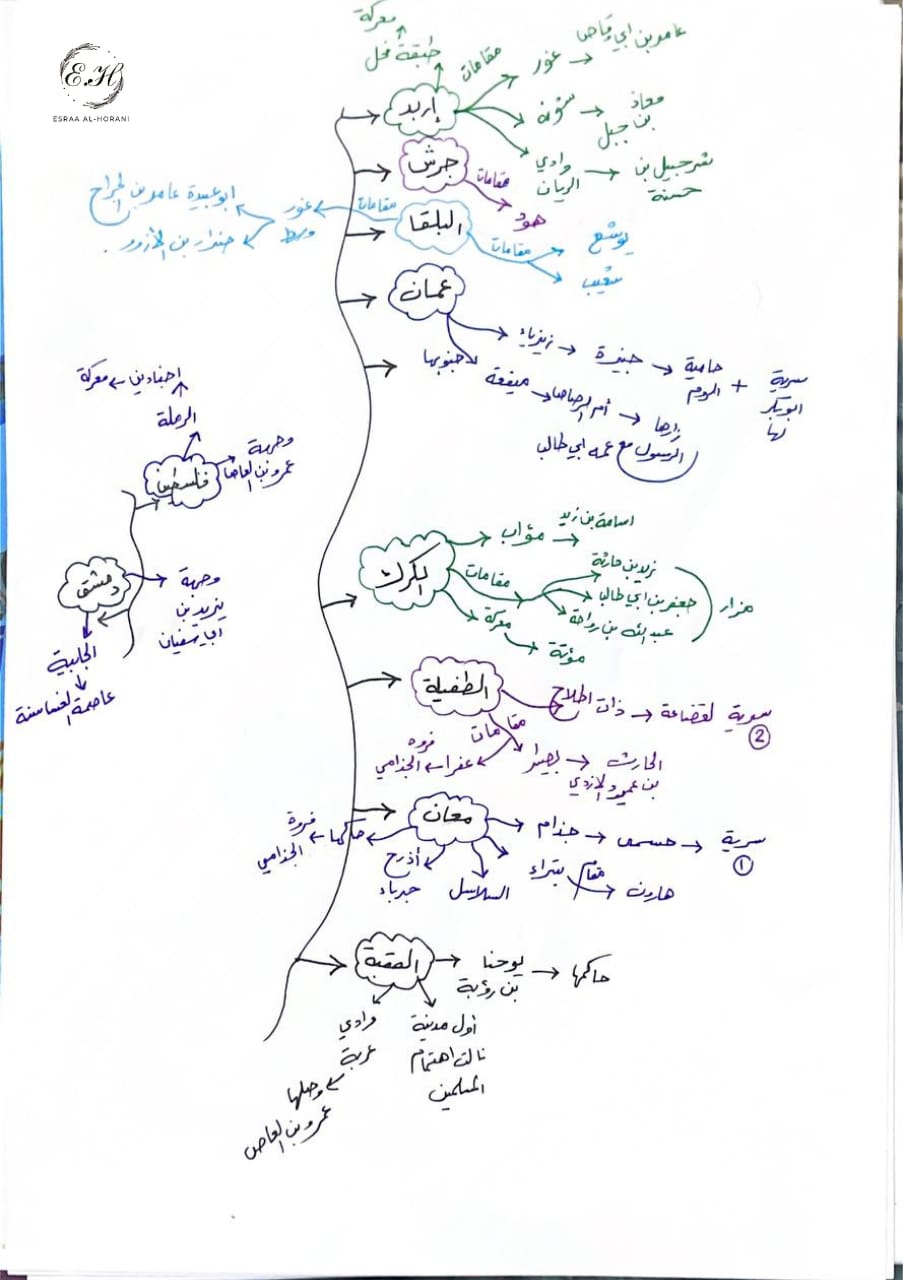 E.H
ESRAA AL-HORANI
معركة
طبقة فحل
إربد
مقامات
غور
عامر بن ابي وقاص
معاذ
بن جبل
وادي
الريان
شرحبيل بن
حسنة
جرش
مقامات
هود
البلقا
مقامات
غور
وسط
ابو عبيدة عامر بن الجراح
ضرار بن الأزور.
مقامات
يوشع
شعيب
عمان
زيزياء
جنيزة
حامية
الروم
+
سرية
ابو بكر
لها
جنوبها
ميفعة
أم الرصاص
زارها
الرسول مع عمه ابي طالب
فلسطين
الرملة
اجنادين
معركة
وجهة
عمرو بن العاص
دمشق
وجهة
يزيد بن
ابي سفيان
الجابية
عاصمة الغساسنة
الكرك
مؤاب
اسامة بن زيد
مقامات
زيد بن حارثة
جعفر بن ابي طالب
عبد الله بن رواحة
مزار
معركة
مؤتة
الطفيلة
ذات اطلاح
لقضاعة
سرية
2
مقامات
بصيرا
الحارث
بن عمير الازدي
عفرا
فروه
الجذامي
معان
جذام
حسمى
سرية
1
حاكمها
فروة
الجذامي
أذرح
جرباء
السلاسل
بتراء
مقام
هارون
العقبة
يوحنا
بن رؤبة
حاكمها
أول مدينة
نالت اهتمام
المسلمين
وادي
عربة
وصلها
عمرو بن العاص